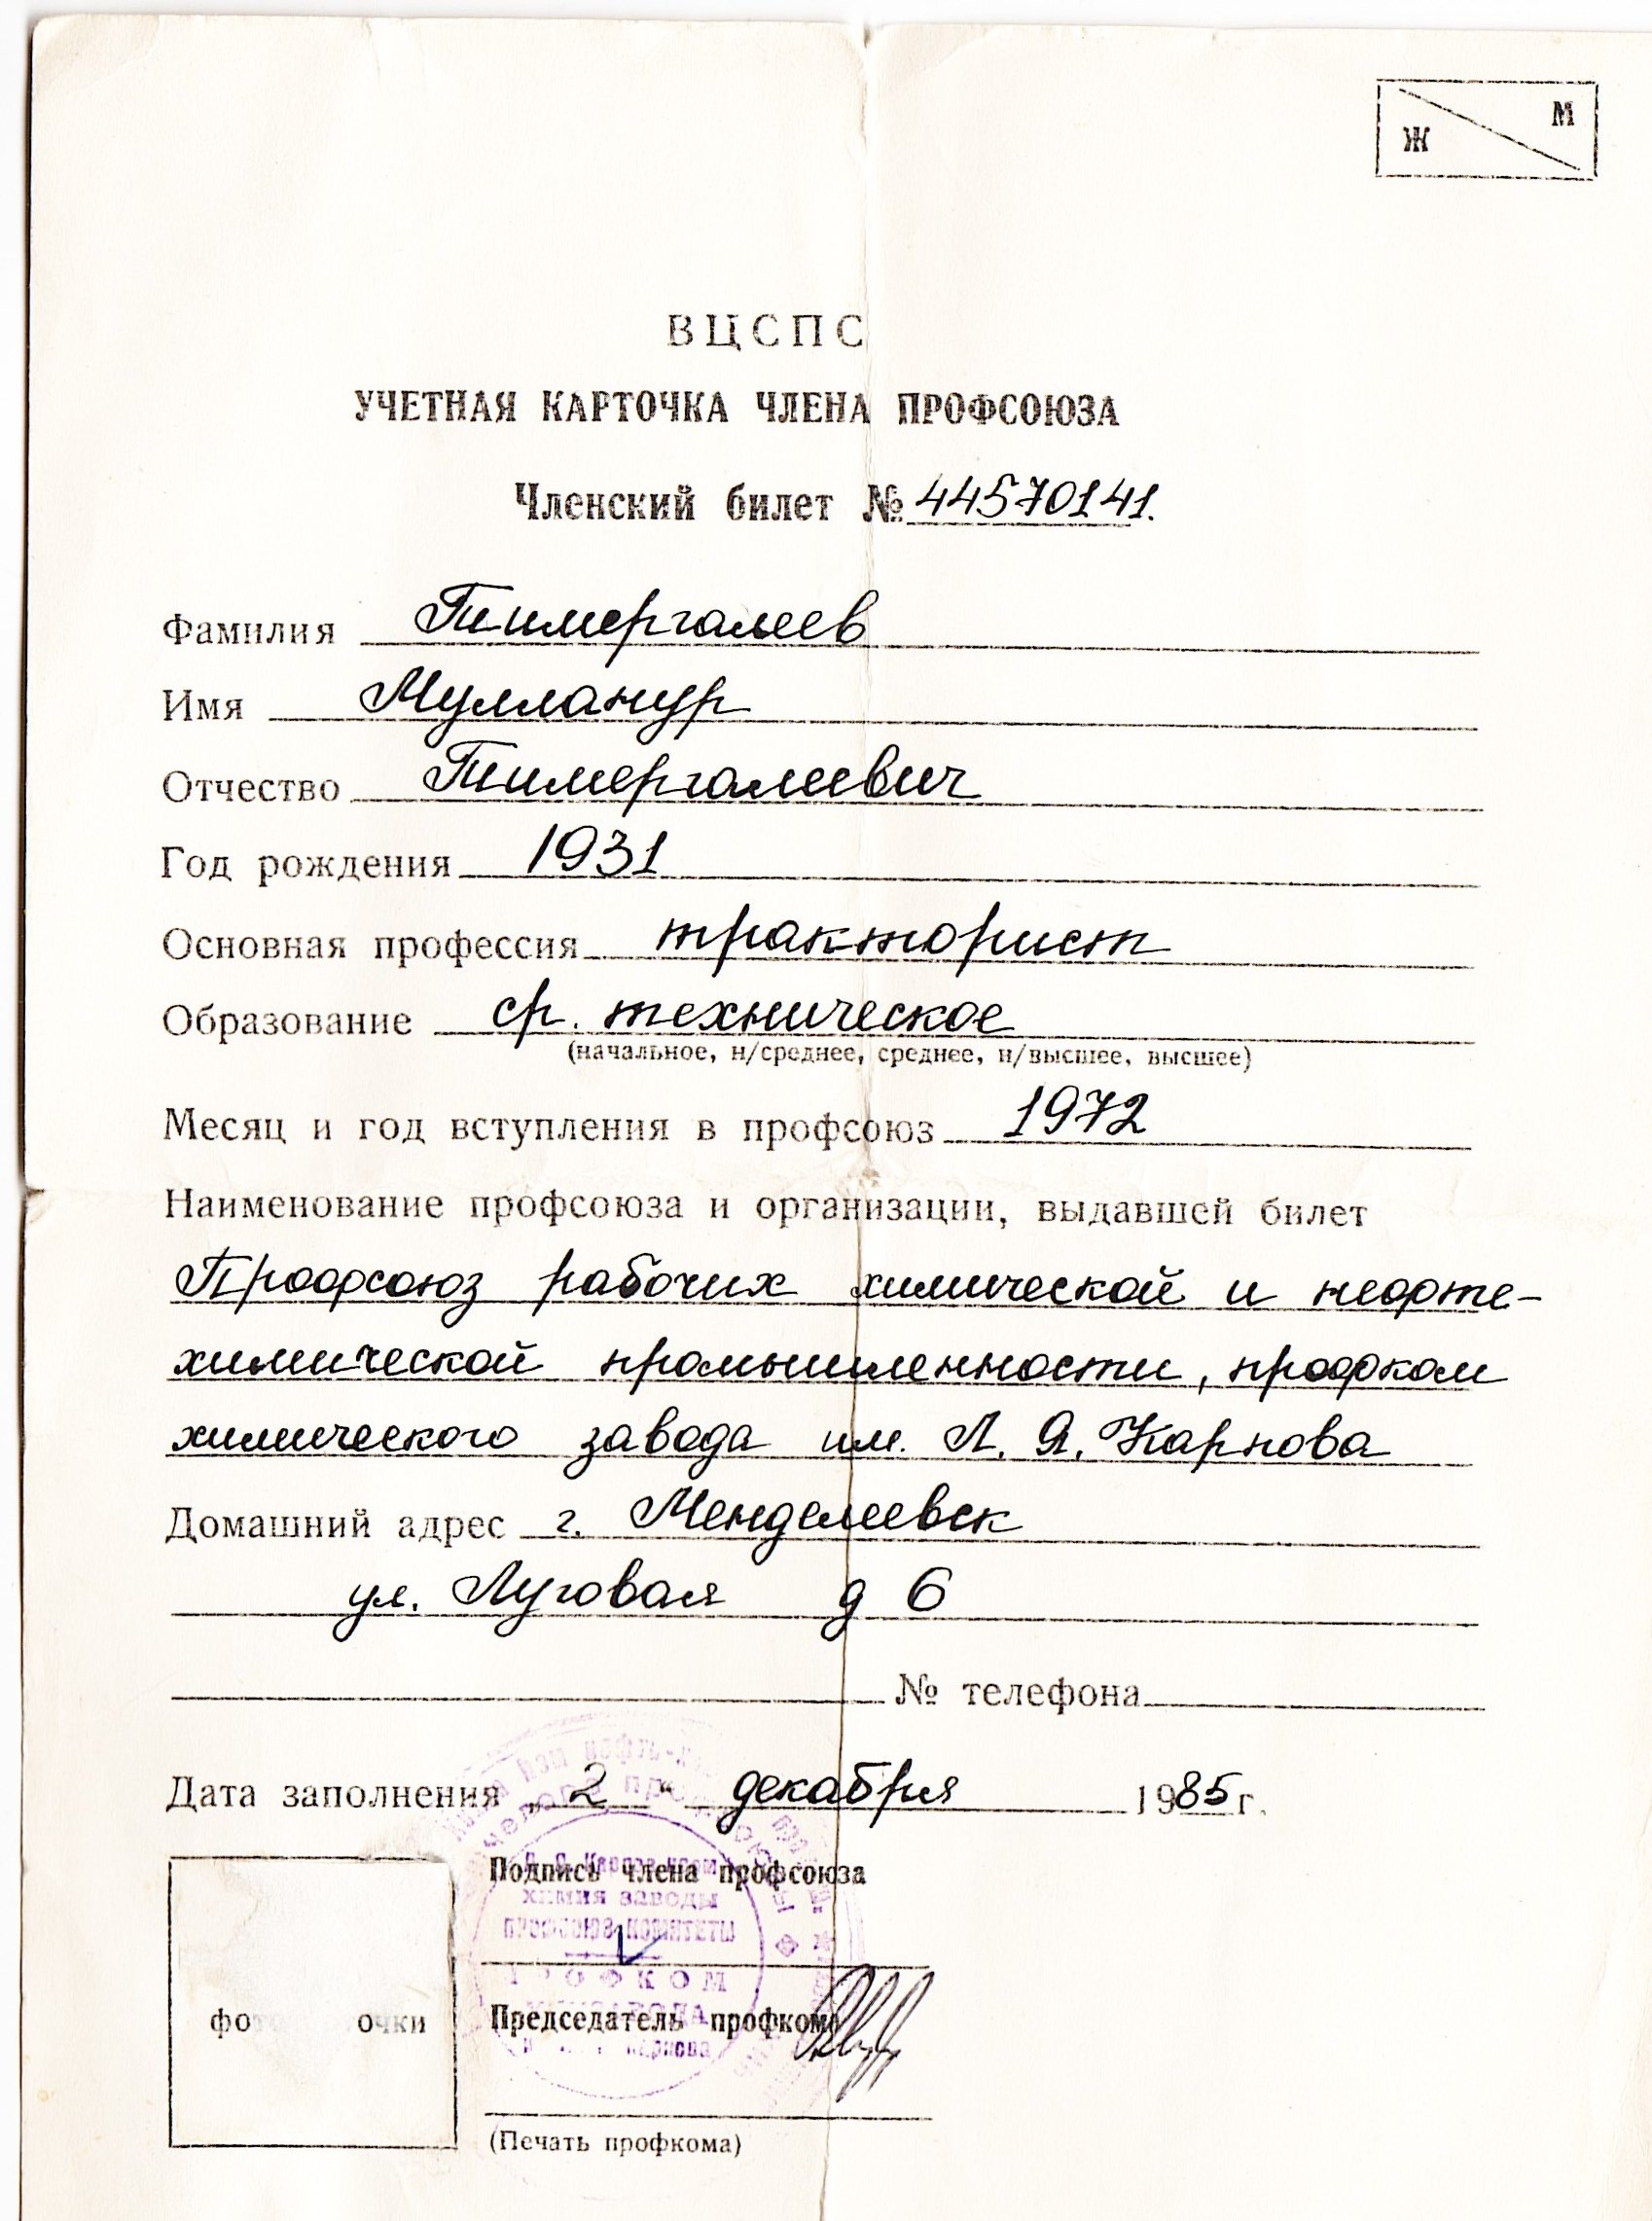 М
Ж
ВЦСПС
УЧЕТНАЯ КАРТОЧКА ЧЛЕНА ПРОФСОЮЗА
Членский билет № 44570141.
Фамилия Тимергалеев
Имя Мулланур
Отчество Тимергалеевич
Год рождения 1931
Основная профессия тракторист
Образование ср. техническое
(начальное, н/среднее, среднее, н/высшее, высшее)
Месяц и год вступления в профсоюз 1972
Наименование профсоюза и организации, выдавшей билет
Профсоюз рабочих химической и нефте-
химической промышленности, профком
химического завода им. Л. Я. Карпова
Домашний адрес г. Менделеевск
ул. Луговая д 6
№ телефона
Дата заполнения „ 2 “ декабря 1985 г.
Подпись члена профсоюза
химия заводы
профсоюз комитеты
ПРОФКОМ
Председатель профкома
Карпова
фо очки
(Печать профкома)